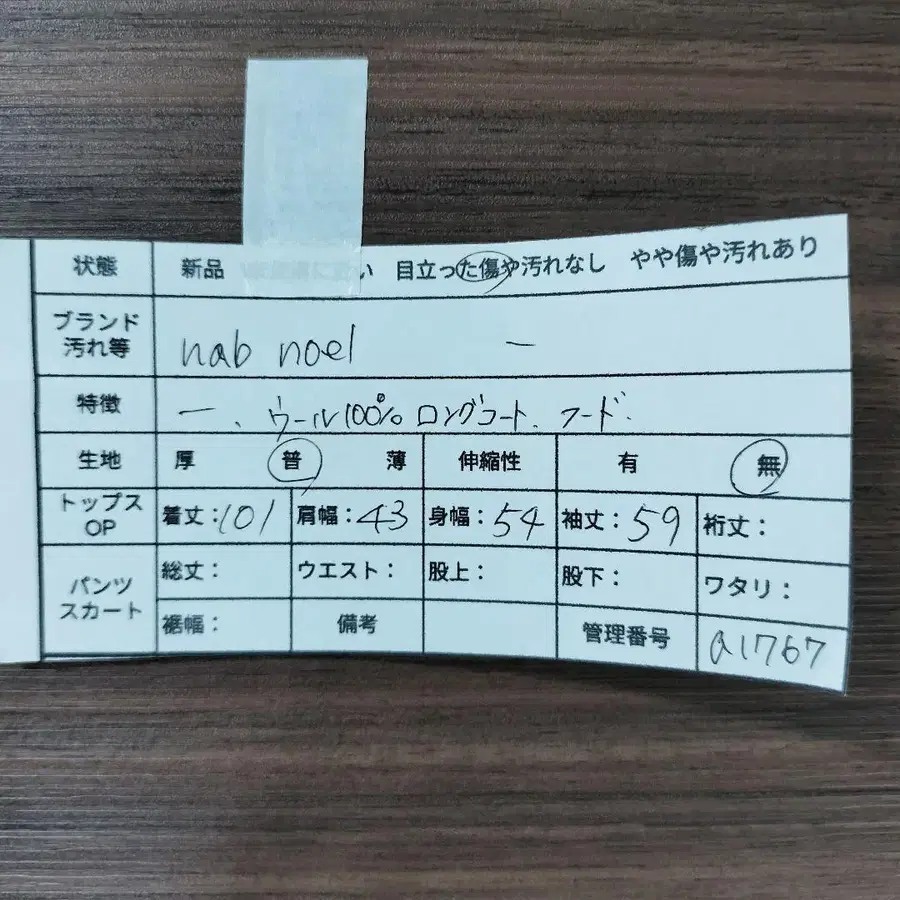 状態 新品 い 目立った傷や汚れなし やや傷や汚れあり
ブランド 汚れ等 nab noel ー
特徴 ー . ウール100% ロングコート. フード.
生地 厚 普 薄 伸縮性 有 無
トップス OP 着丈:101 肩幅:43 身幅:54 袖丈:59 裄丈:
パンツ スカート 総丈: ウエスト: 股上: 股下: ワタリ:
裾幅: 備考 管理番号 a1767